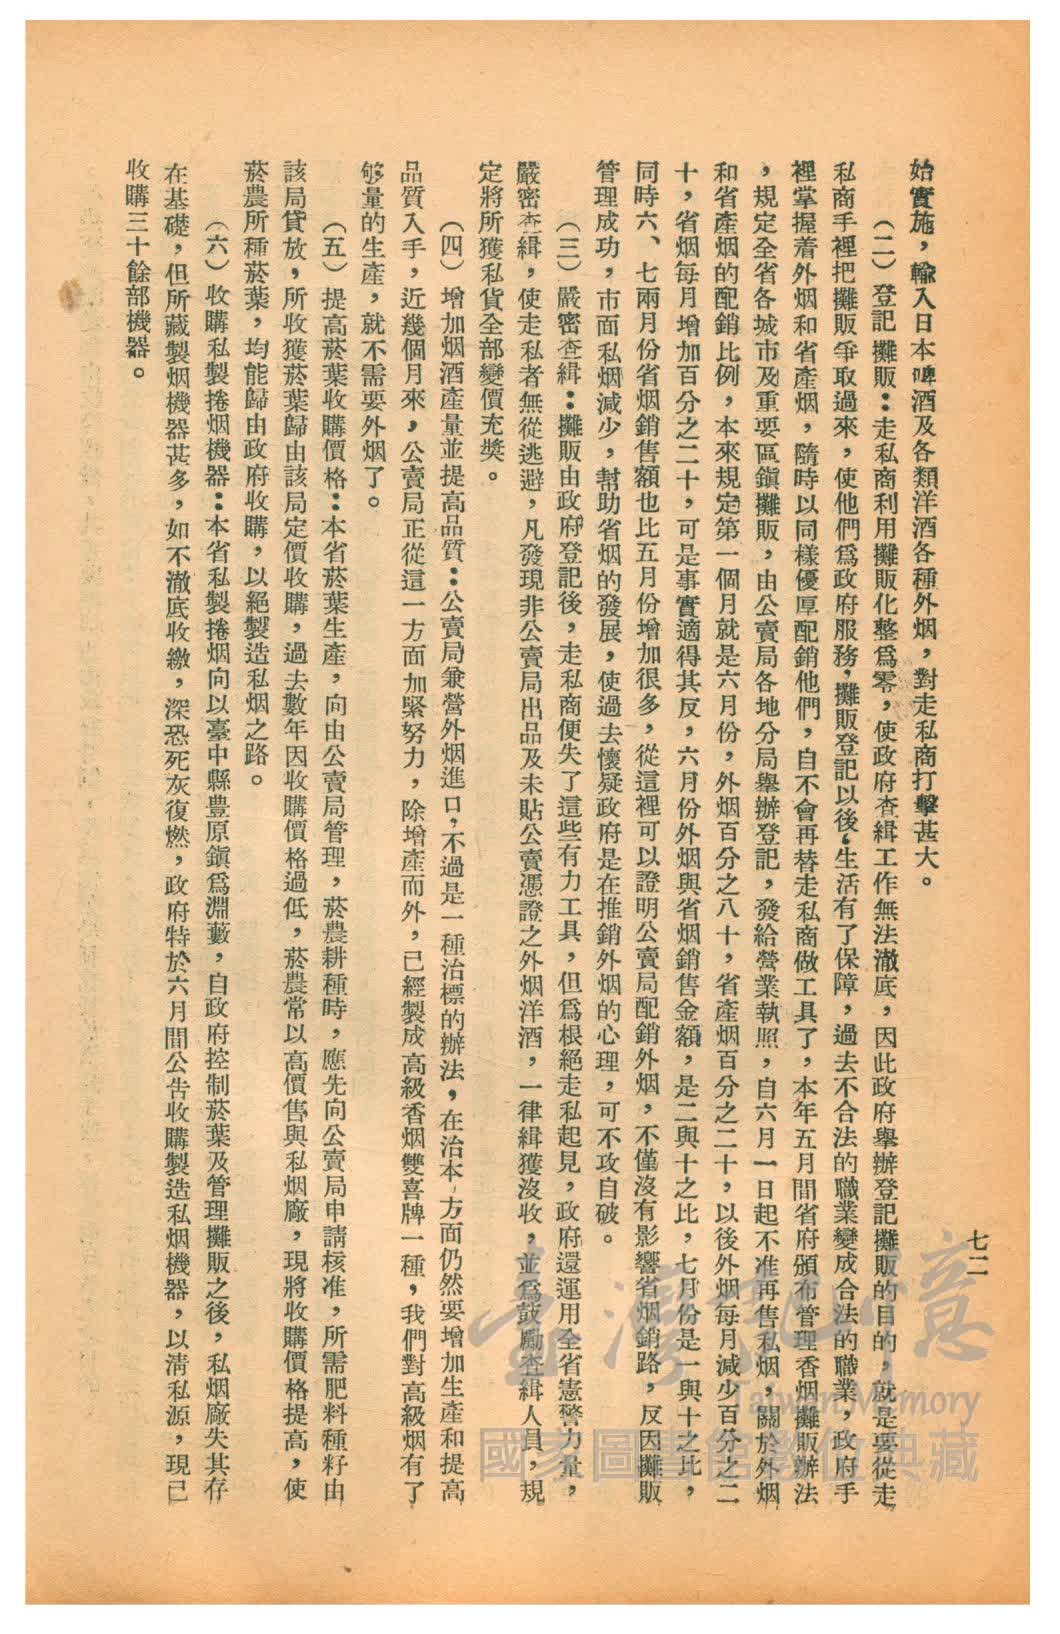 七二
始實施，輸入日本啤酒及各類洋酒各種外烟，對走私商打擊甚大。
（二）登記攤販：走私商利用攤販化整爲零，使政府查緝工作無法澈底，因此政府舉辦登記攤販的目的，就是要從走
私商手裡把攤販爭取過來，使他們爲政府服務，攤販登記以後，生活有了保障，過去不合法的職業變成合法的職業，政府手
裡掌握着外烟和省產烟，隋時以同樣優厚配銷他們，自不會再替走私商做工具了，本年五月間省府頒布管理香烟攤販辦法
，規定全省各城市及重要區鎭攤販，由公賣局各地分局舉辦登記，發給營業執照，自六月一日起不准再售私烟，關於外烟
和省產烟的配銷比例，本來規定第一個月就是六月份，外烟百分之八十，省產烟百分之二十，以後外烟每月減少百分之二
十，省烟每月增加百分之二十，可是事實適得其反，六月份外烟與省烟銷售金額，是二與十之比，七月份是一與十之比，
同時六、七兩月份省烟銷售額也比五月份增加很多，從這裡可以證明公賣局配銷外烟，不僅沒有影響省烟銷路，反因攤販
管理成功，市面私烟減少，幫助省烟的發展，使過去懷疑政府是在推銷外烟的心理，可不攻自破。
（三）嚴密查緝：攤販由政府登記後，走私商便失了這些有力工具，但爲根絕走私起見，政府還運用全省憲警力量，
嚴密查緝，使走私者無從逃避，凡發現非公賣局出品及未貼公賣憑證之外烟洋酒，一律緝獲沒收，並爲鼓勵查緝人員，規
定將所獲私貨全部變價充獎。
（四）增加烟酒產量並提高品質：公賣局兼營外烟進口，不過是一種治標的辦法，在治本方面仍然要增加生產和提高
品質入手，近幾個月來，公賣局正從這一方面加緊努力，除增產而外，已經製成高級香烟雙喜牌一種，我們對高級烟有了
够量的生產，就不需要外烟了。
（五）提高菸葉收購價格：本省菸葉生產，向由公賣局管理，菸農耕種時，應先向公賣局申請核准，所需肥料種籽由
該局貸放，所收獲菸葉歸由該局定價收購，過去數年因收購價格過低，菸農常以高價售與私烟廠，現將收購價格提高，使
菸農所種菸葉，均能歸由政府收購，以絕製造私烟之路。
（六）收購私製捲烟機器：本省私製捲烟向以臺中縣豊原鎭爲淵藪，自政府控制菸葉及管理攤販之後，私烟廠失其存
在基礎，但所藏製烟機器甚多，如不澈底收繳，深恐死灰復燃，政府特於六月間公告收購製造私烟機器，以淸私源，現已
收購三十餘部機器。
臺灣記憶
Taiwan Memory
國家圖書館數位典藏